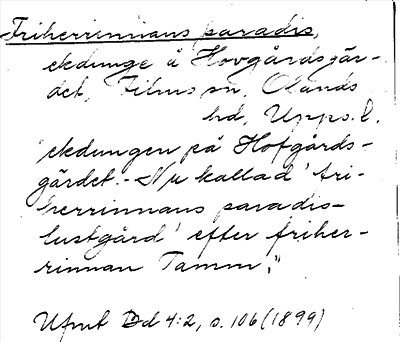 Friherrinnans paradis,
ekdunge å Hovgårdsgär-
det, Films sn, Olands
hd, Upps. l.
"ekdungen på Hofgårds-
gärdet. - Nu kallad 'fri-
herrinnans paradis-
lustgård' efter friher-
rinnan Tamm."
Ufmt Dd 4:2, s. 106 (1899)